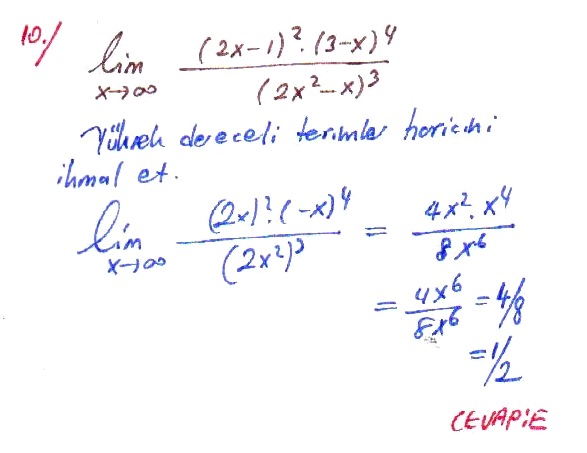 10./ lim x→∞ (2x-1)². (3-x)⁴ / (2x²-x)³
Yüksek dereceli terimler haricini
ihmal et.
lim x→∞ (2x)².(-x)⁴ / (2x²)³ = 4x². x⁴ / 8x⁶
= 4x⁶ / 8x⁶ = 4/8
= 1/2
CEVAP:E